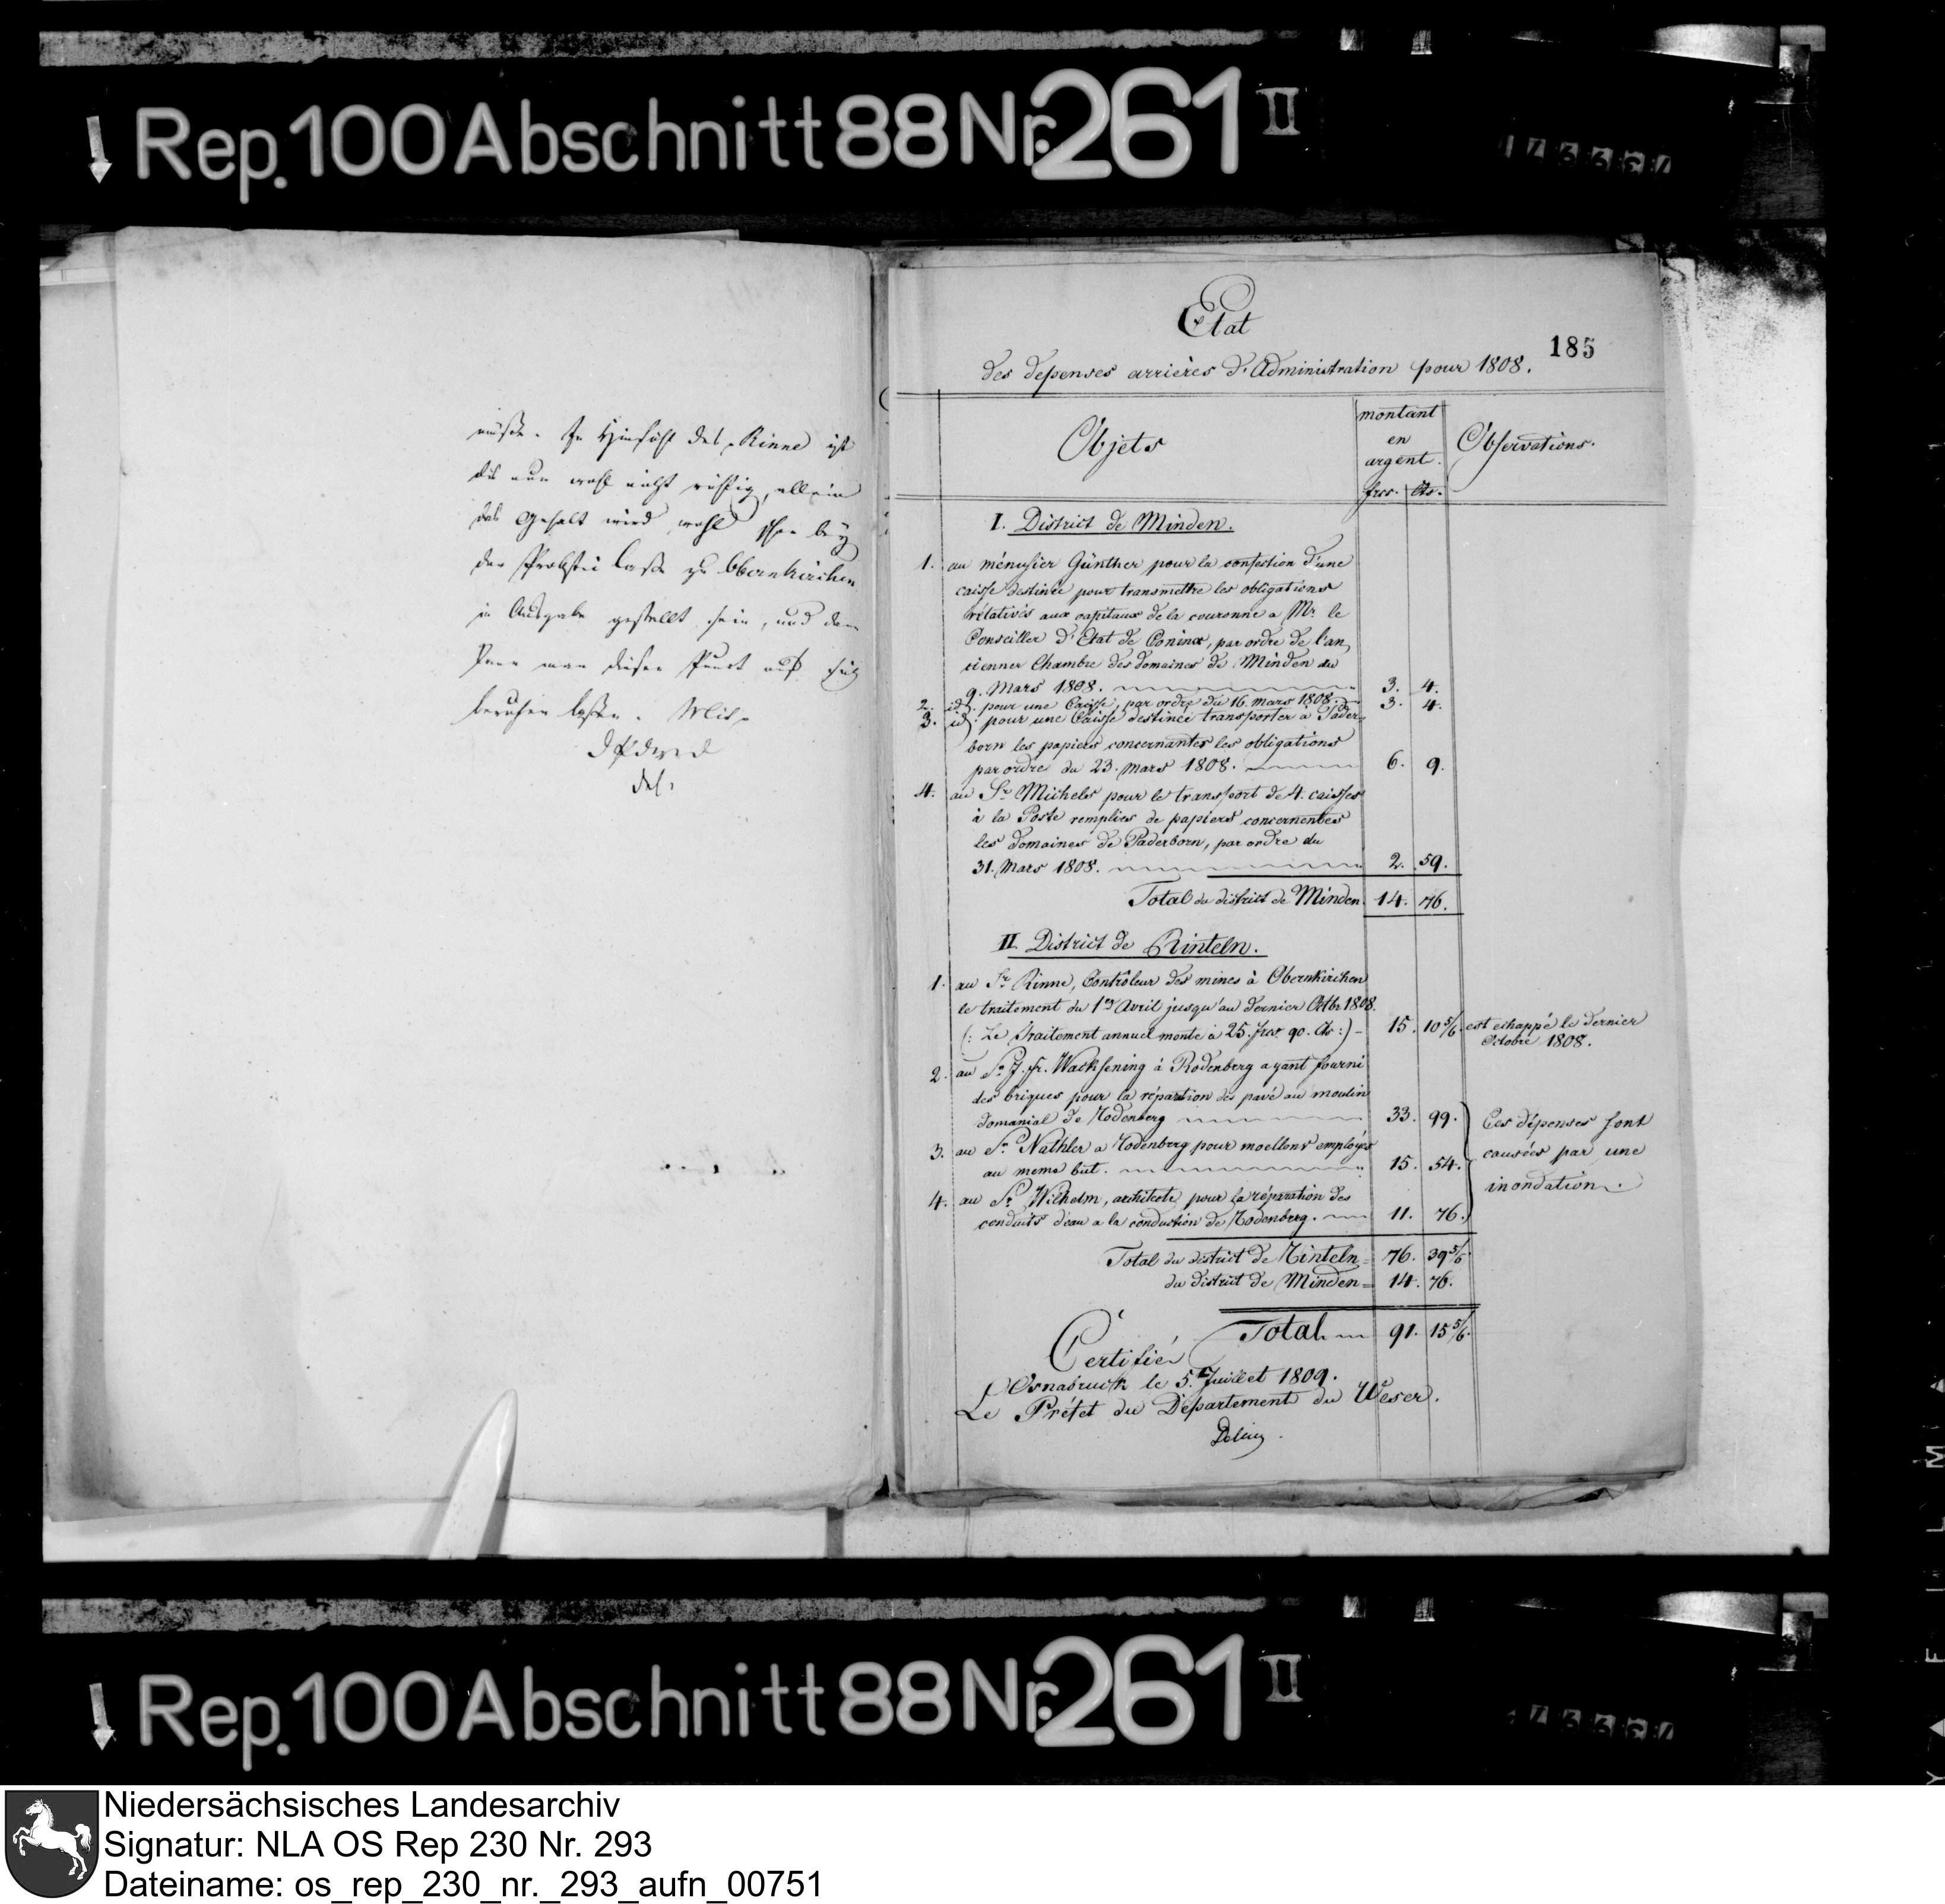 Rep. 100 Abschnitt 88 Nr. 261 II
müßte. In Hinsicht des p Rinne ist
dis nun wohl nicht richtig, allein
das Gehalt wird wohl schon bey
der Probstei Casse zu Obernkirchen
in Ausgabe gestellt sein, und dem
man diesen Punct auf sich
beruhen lassen.
Etat
185
des depenses arrières d'Administration pour 1808.
Objets
montant
en
argent.
frcs. Cts.
Observations.
I. District de Minden.
1. au ménusier Günther pour la confection d'une
caisse destinée pour transmettre les obligations
rélatives aux capitaux de la couronne a Mr. le
Conseiller d'Etat de Coninx, par ordre de l'an
cienner Chambre des domaines de Minden du
9. Mars 1808. 3. 4.
2. id. pour une Caisse, par ordre du 16. mars 1808. 3. 4.
3. id. pour une Caisse destinée transporter à Pader
born les papiers concernantes les obligations
par ordre du 23. mars 1808. 6. 9.
4. au Sr. Michels pour le transport de 4. caisses
à la Poste remplies de papiers concernentes
les domaines de Paderborn, par ordre du
31. Mars 1808. 2. 59.
Total du district de Minden 14. 76.
II. District de Rinteln.
1. au Sr. Rinne, Contrôleur des mines à Obernkirchen
le traitement du 1er Avril jusqu'au dernier Octbr. 1808.
(: Le traitement annuel monte à 25. frcs 90. Cts :) 15. 10 5/6. est echappé le dernier
Octobre 1808.
2. au Sr. J. Fr. Wachsening à Rodenberg ayant fourni
des briques pour la réparation des pavé au moulin
domanial de Rodenberg 33. 99.
3. au Sr. Nathler a Rodenberg pour moellons employés
au meme but. 15. 54.
4. au Sr. Wilhelm, architecte pour la réparation des
conduits d'eau a la conduction de Rodenberg. 11. 76.
Ces dépenses sont
causées par une
inondation.
Total du district de Rinteln = 76. 39 5/6.
du district de Minden = 14. 76.
Total 91. 15 5/6.
Certifié
Osnabruck le 5. Juillet 1809.
Le Préfet du Département du Weser.
Delius
Rep. 100 Abschnitt 88 Nr. 261 II
Niedersächsisches Landesarchiv
Signatur: NLA OS Rep 230 Nr. 293
Dateiname: os_rep_230_nr._293_aufn_00751